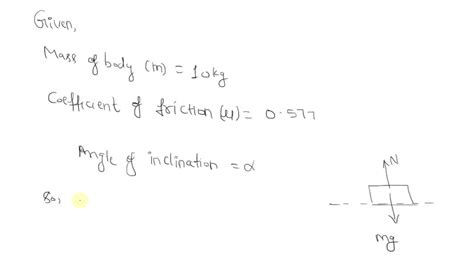 Given,
Mass of body (m) = 10kg
Coefficient of friction (μ) = 0.577
Angle of inclination = α
So,
N
mg